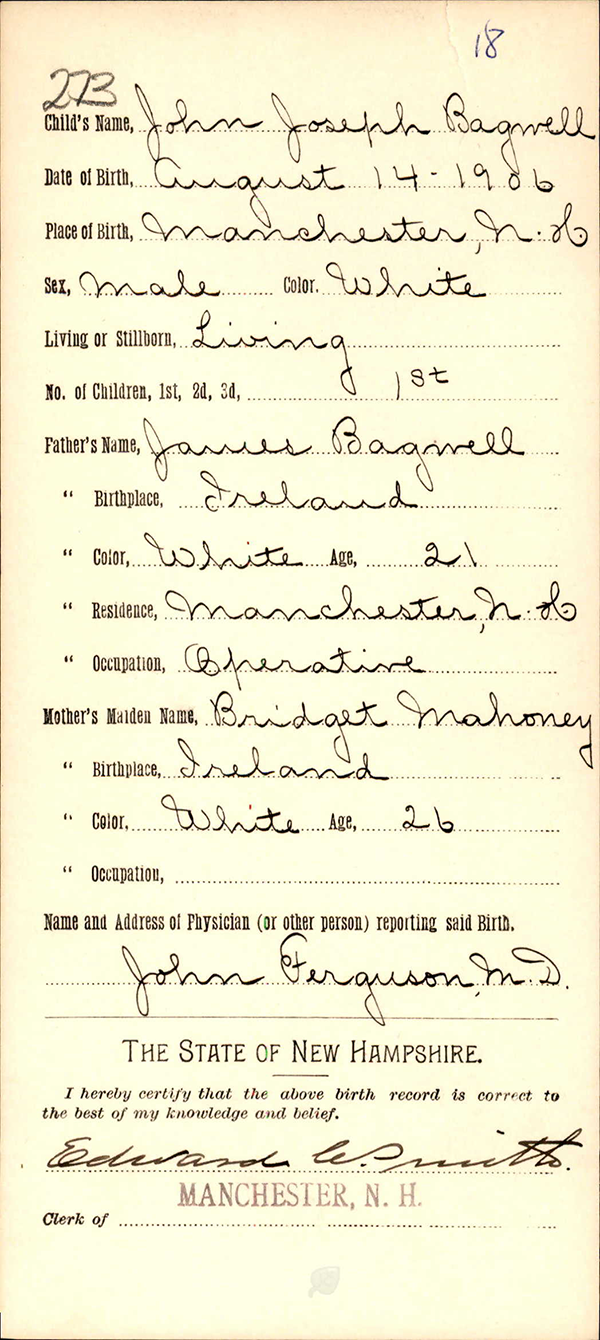 18
273
Child's Name, John Joseph Bagwell
Date of Birth, August 14-1906
Place of Birth, Manchester, N. H
Sex, Male Color. White
Living or Stillborn, Living
No. of Children, 1st, 2d, 3d, 1st
Father's Name, James Bagwell
" Birthplace, Ireland
" Color, White Age, 21
" Residence, Manchester, N. H
" Occupation, Operative
Mother's Maiden Name, Bridget Mahoney
" Birthplace, Ireland
" Color, White Age, 26
" Occupation,
Name and Address of Physician (or other person) reporting said Birth.
John Ferguson, M. D.
THE STATE OF NEW HAMPSHIRE.
I hereby certify that the above birth record is correct to
the best of my knowledge and belief.
Edward C. Smith.
MANCHESTER, N. H.
Clerk of